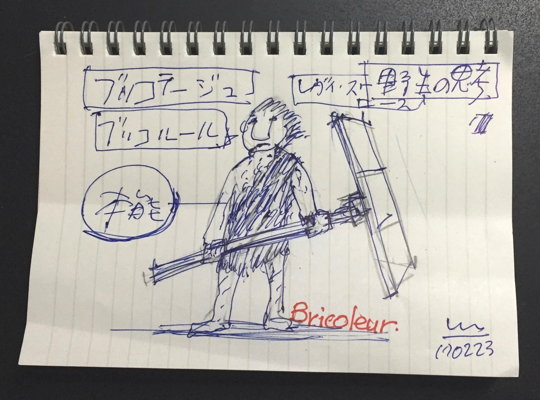 ブリコラージュ
レヴィ・ストロース
野生の思考
ブリコルール
本能
Bricoleur.
170223